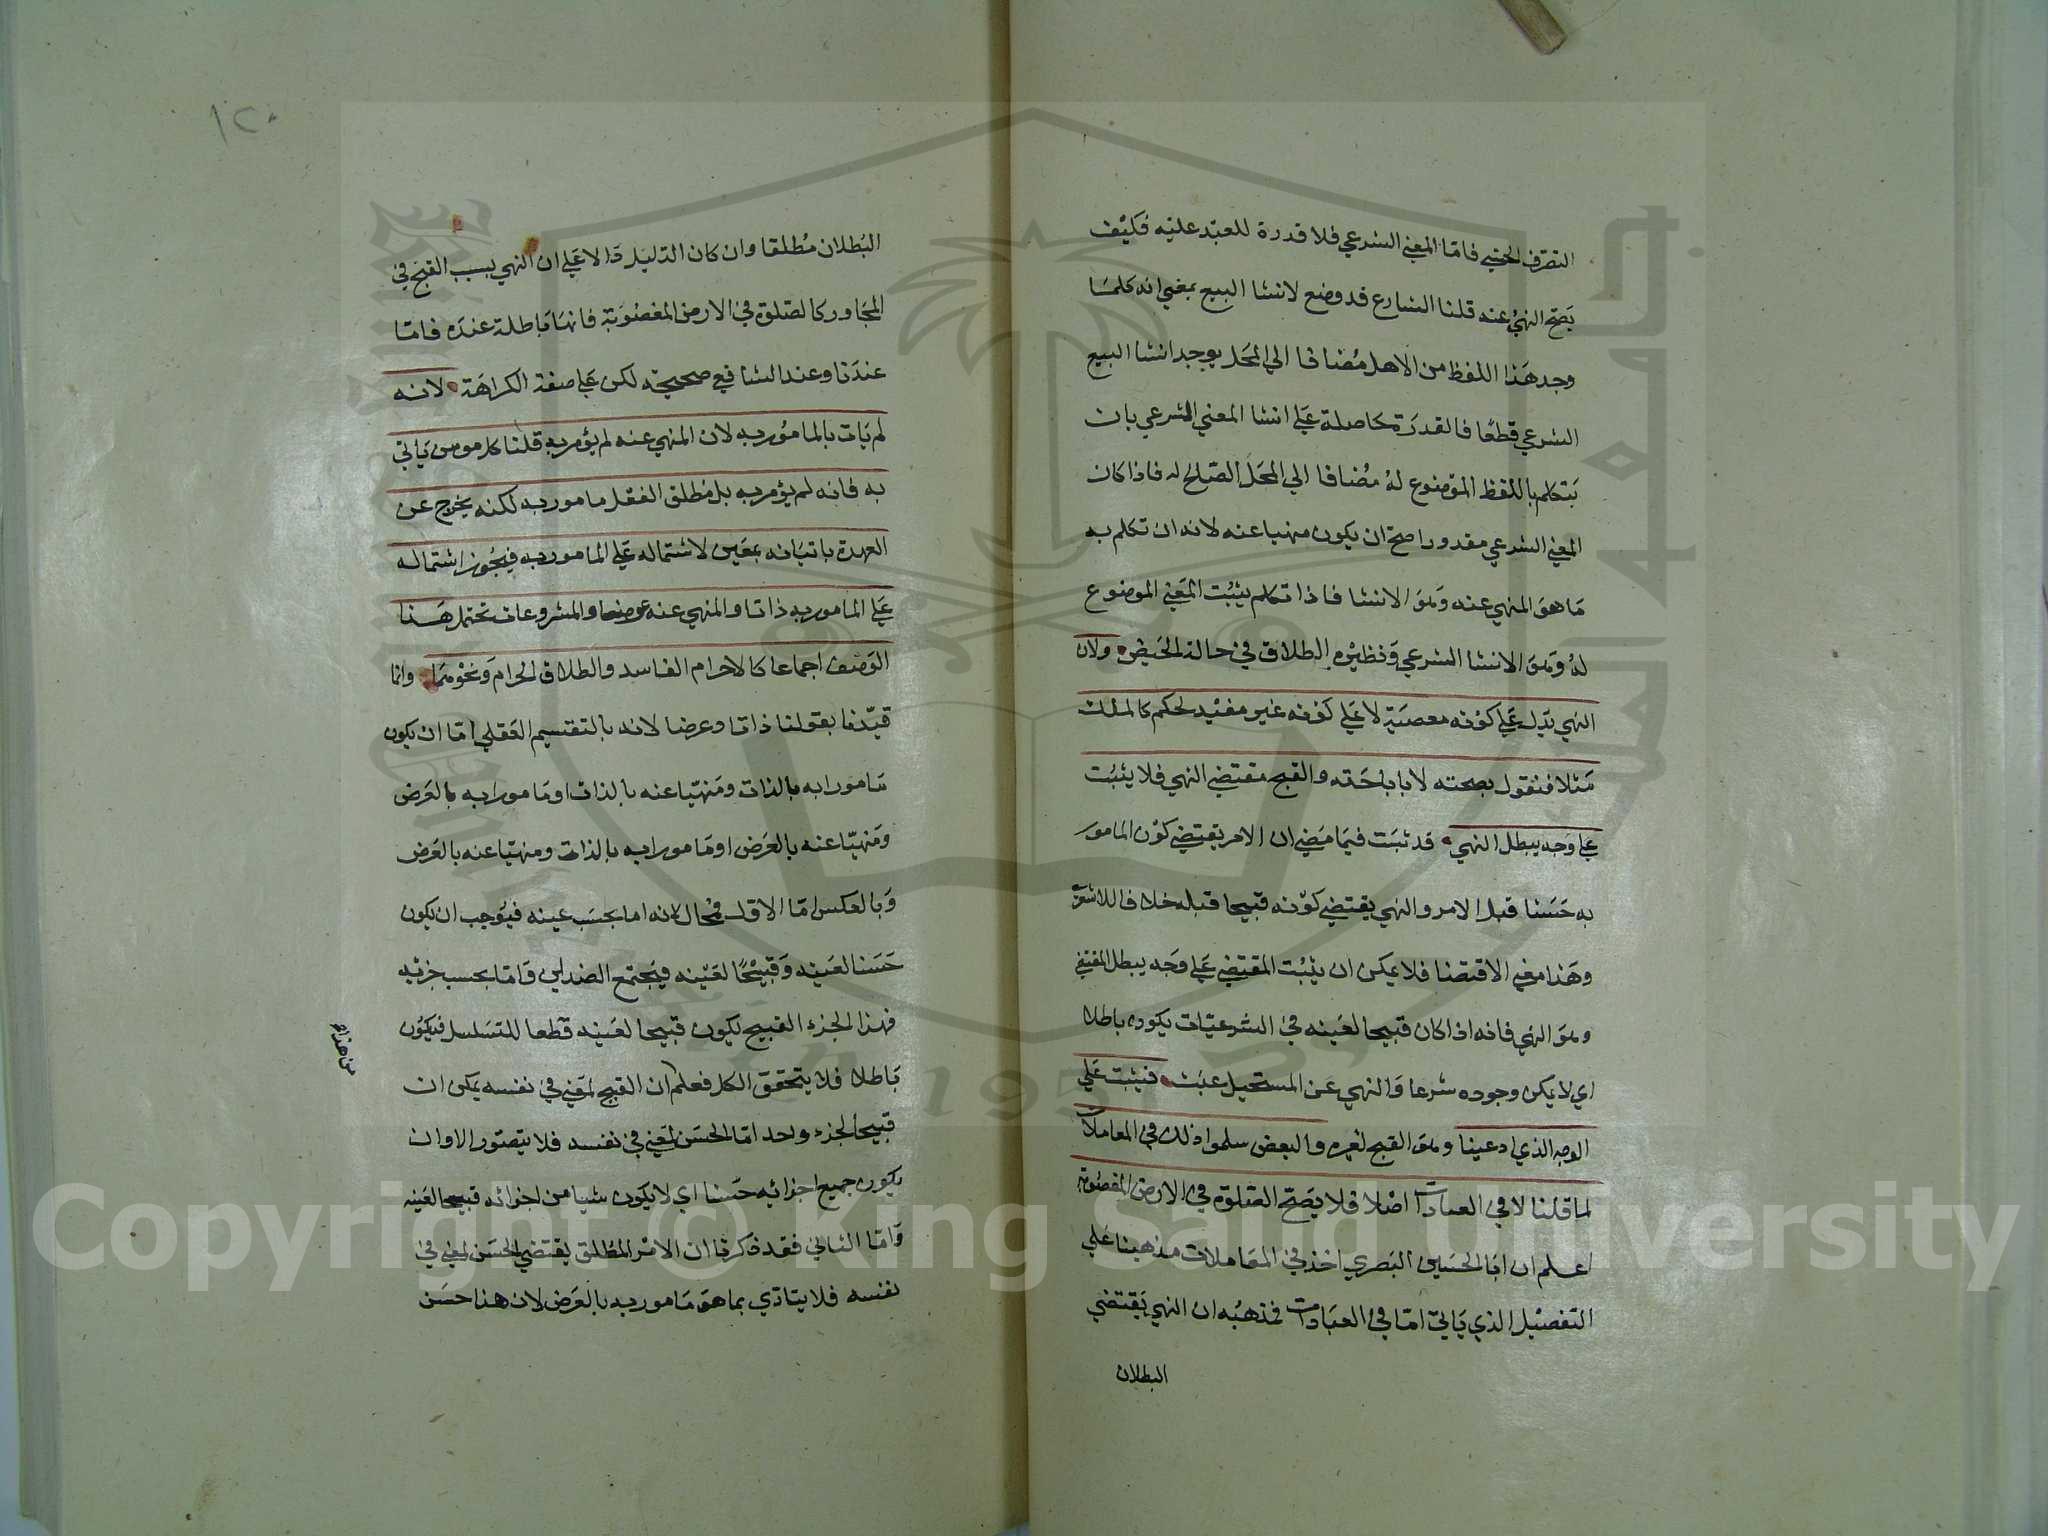 التصرف الحسي فاما المعني الشرعي فلا قدرة للعبد عليه فكيف
يصح النهي عنه قلنا الشارع قد وضع لانشا البيع بمعني انه كلما
وجد هذا اللفظ من الاهل مضافا الي المحل يوجد انشا البيع
الشرعي قطعا فالقدرة حاصلة علي انشا المعني الشرعي بان
يتكلم باللفظ الموضوع له مضافا الي المحل الصالح له فاذا كان
المعني الشرعي مقدورا صح ان يكون منهيا عنه لانه ان تكلم به
ما هو المنهي عنه وهو الانشا فاذا تكلم يثبت المعني الموضوع
له وهو الانشا الشرعي ونظيره الطلاق في حالة الحيض ولان
النهي يدل علي كونه معصية لا علي كونه غير مفيد لحكمه كالملك
مثلا فنقول بصحته لا باباحته والقبح مقتضي النهي فلا يثبت
علي وجه يبطل النهي قد ثبت فيما مضي ان الامر يقتضي كون المامور
به حسنا قبل الامر والنهي يقتضي كونه قبيحا قبله خلافا للاشعري
وهذا معني الاقتضا فلا يمكن ان يثبت المقتضي علي وجه يبطل المقتضي
وهو النهي فانه اذا كان قبيحا لعينه في الشرعيات يكون باطلا
اي لا يمكن وجوده شرعا والنهي عن المستحيل عبث فيثبت علي
الوجه الذي ادعينا وهو القبح لغيره والبعض سلموا ذلك في المعاملات
لما قلنا لا في العبادات اصلا فلا يصح الصلوة في الارض المغصوبة
اعلم ان ابا الحسين البصري اخذ في المعاملات مذهبنا علي
التفصيل الذي ياتي اما في العبادات فمذهبه ان النهي يقتضي
البطلان
١٢٠
البطلان مطلقا وان كان الدليل دالا علي ان النهي بسبب القبح في
المجاور كالصلوة في الارض المغصوبة فانها باطلة عنده فاما
عندنا وعند الشافعي صحيحة لكن علي صفة الكراهة لانه
لم يات بالمامور به لان المنهي عنه لم يؤمر به قلنا كل مومن ياتي
به فانه لم يؤمر به بل مطلق الفعل مامور به لكنه يخرج عن
العهدة باتيانه بمعين لاشتماله علي المامور به فيجوز اشتماله
علي المامور به ذاتا والمنهي عنه عرضا والمشروعات تحتمل هذا
الوصف اجماعا كالاحرام الفاسد والطلاق الحرام ونحوهما وانما
قيدنا بقولنا ذاتا وعرضا لانه بالتقسيم العقلي اما ان يكون
مامورا به بالذات ومنهيا عنه بالذات او مامورا به بالعرض
ومنهيا عنه بالعرض او مامورا به بالذات ومنهيا عنه بالعرض
وبالعكس اما الاول فمحال لانه اما بحسب عينه فيوجب ان يكون
حسنا لعينه وقبيحا لعينه فيجتمع الضدان واما بحسب جزئه
فهذا الجزء القبيح يكون قبيحا لعينه قطعا للتسلسل فيكون
باطلا فلا يتحقق الكل فعلم ان القبح لمعني في نفسه يمكن ان
قبيحا لجزء واحد اما الحسن لمعني في نفسه فلا يتصور الا وان
يكون جميع اجزائه حسنا اي لا يكون شيا من اجزائه قبيحا لعينه
واما الثاني فقد ذكرنا ان الامر المطلق يقتضي الحسن لمعني في
نفسه فلا يتادي بما هو مامور به بالعرض لان هذا حسن
Copyright © King Saud University
1957